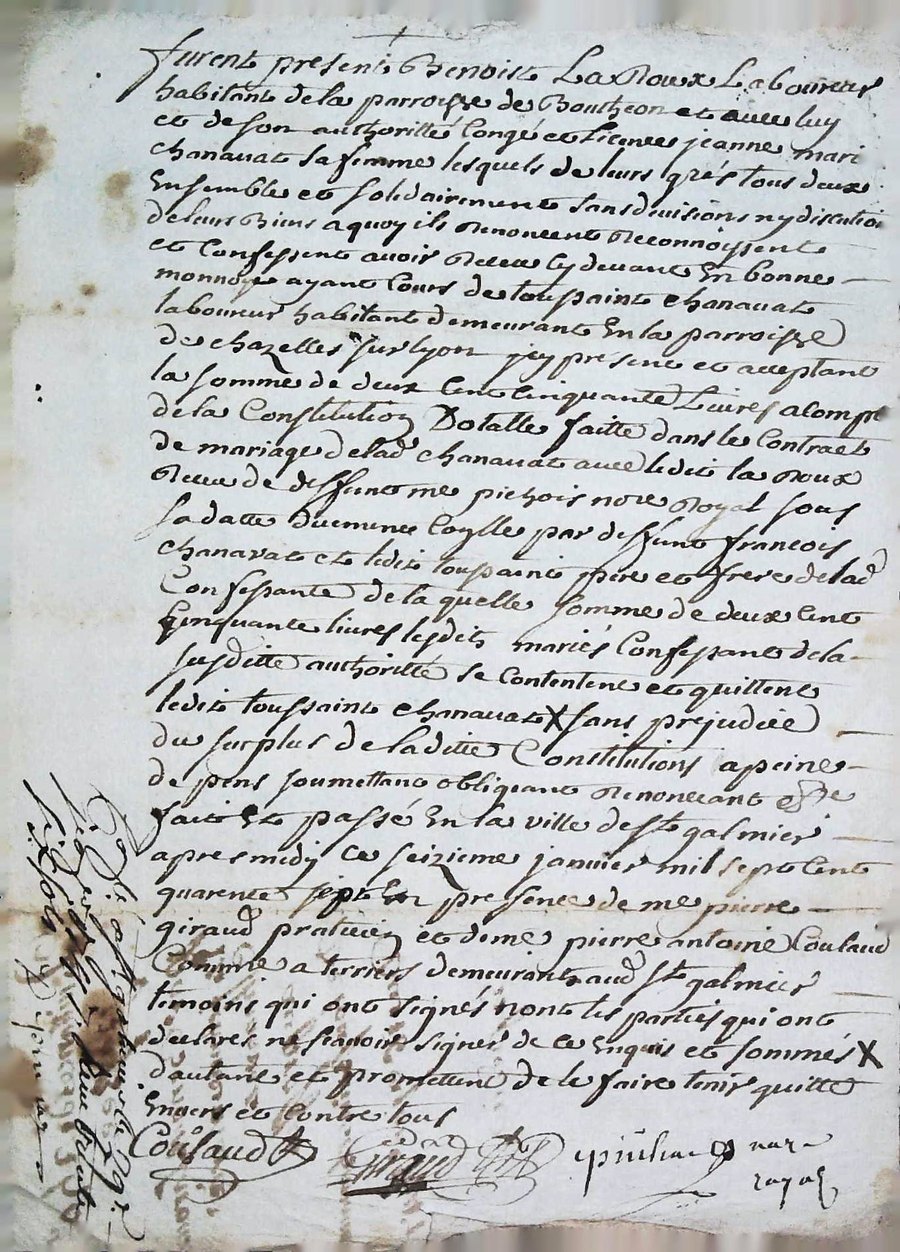 furent present Benoist La Roux Laboureur
habitant de la parroisse de Boutheon et avec luy
et de son authoritté Congé et Licence jeanne mari
chanavat sa femme lesquels de leurs grés tous deux
Ensemble et solidairement sans division ny discution
de leurs Biens a quoy ils Renoncent Reconnoissent
et Confessent avoir Receu cy devant En bonne
monnoye ayant Cours de toussaint chanavat
laboureur habitant demeurant En la parroisse
de chazelles sur lyon jcy present et acceptant
la somme de deux Cent Cinquante Livres a Compte
de la Constitution Dotalle faitte dans le Contract
de mariage de lad chanavat avec ledit la Roux
Receu de deffunt me pichois nore Royal sous
sa datte düement Coylle par deffunt francois
chanavat et ledit toussaint pere et frere de lad
Confessante de la quelle somme de deux Cent
Cinquante livres lesdits mariés Confessant de la
susditte authoritté se Contentent et quittent
ledit toussaint chanavat X sans prejudice
du surplus de laditte Constitution a peine
de pens soumettant obligeant Renoncant
fait Et passé En la ville de St galmier
apres midy Ce seizieme janvier mil sept Cent
quarente sept En presence de me pierre
giraud praticien et de me pierre antoine Coulaud
Commre a terriers demeurant aud St galmier
temoins qui ont signés non les parties qui ont
declarés ne scavoir signer de ce Enquis et sommés X
d'autant et promettent de le faire tenir quitte
Envers et Contre tous
Coulaud
Giraud